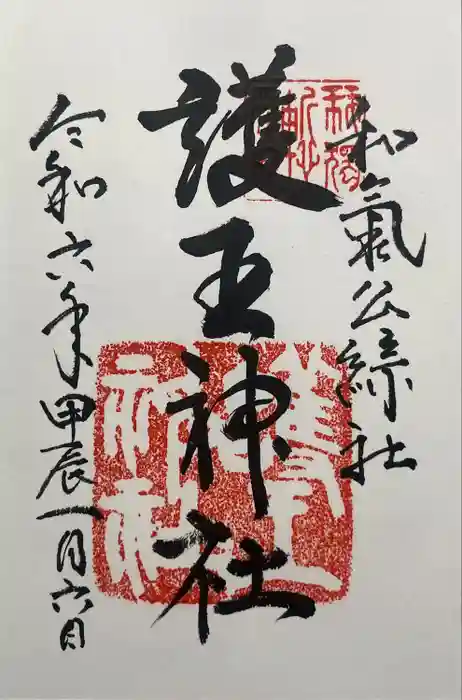 和氣公綜社
護王神社
令和六年甲辰一月六日
護王神社